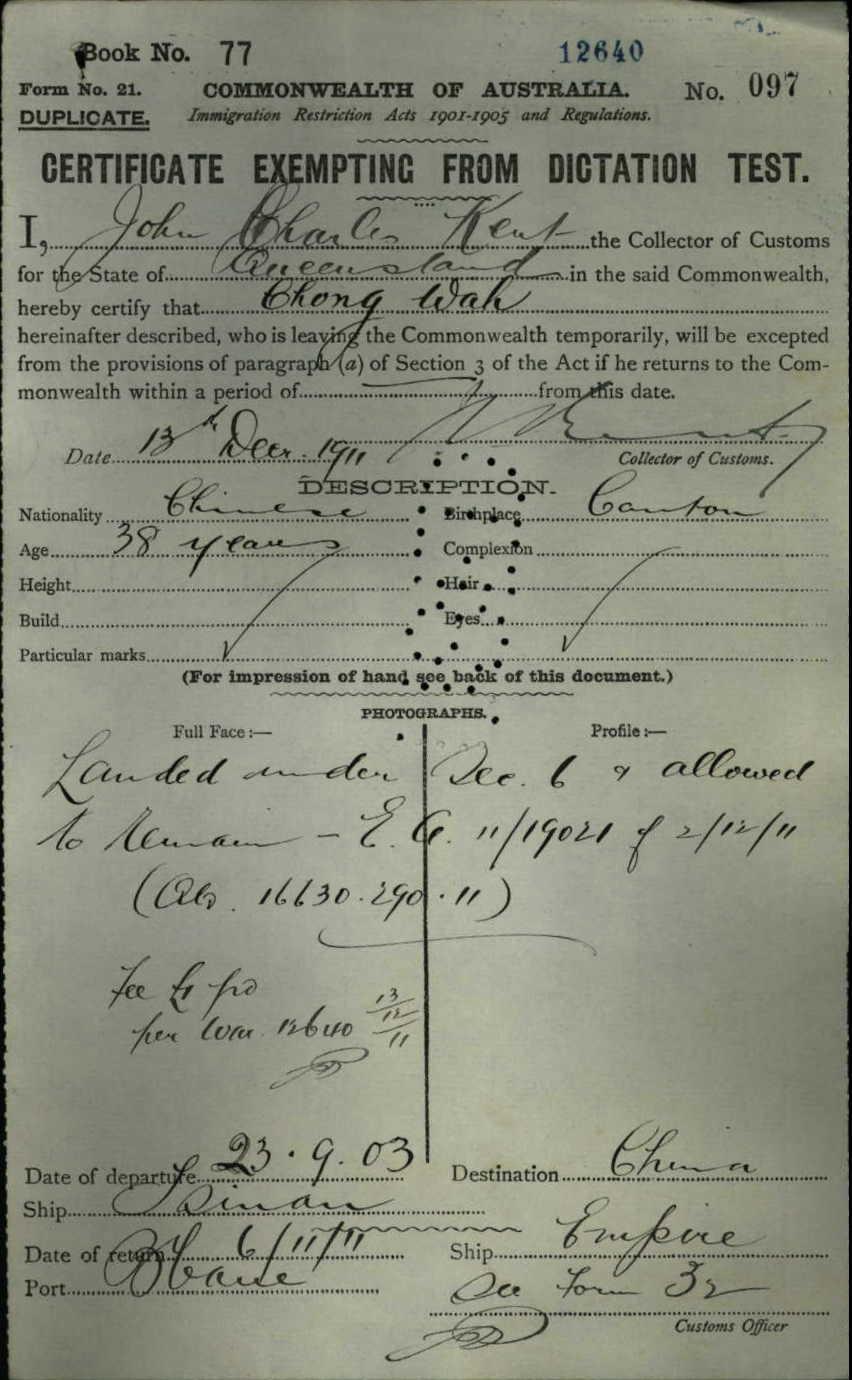 Book No. 77 12640
Form No. 21. COMMONWEALTH OF AUSTRALIA. No. 097
DUPLICATE. Immigration Restriction Acts 1901-1905 and Regulations.
CERTIFICATE EXEMPTING FROM DICTATION TEST.
I, John Charles Kent the Collector of Customs
for the State of Queensland in the said Commonwealth,
hereby certify that Chong Wah
hereinafter described, who is leaving the Commonwealth temporarily, will be excepted
from the provisions of paragraph (a) of Section 3 of the Act if he returns to the Com-
monwealth within a period of from this date.
Date 13th Decr. 1911 Collector of Customs.
DESCRIPTION.
Nationality Chinese Birthplace Canton
Age 38 years Complexion
Height Hair
Build Eyes
Particular marks
(For impression of hand see back of this document.)
PHOTOGRAPHS.
Full Face:— Profile:—
Landed under Sec. 6 & allowed
to remain - E. A. 11/19021 of 2/12/11
16630.290.11)
Fee £1 pd
per War. 12640 13/12/11
Date of departure 23.9.03 Destination China
Ship Tsinan
Date of return 6/11/11 Ship Empire
Port Bbane See Form 32
Customs Officer